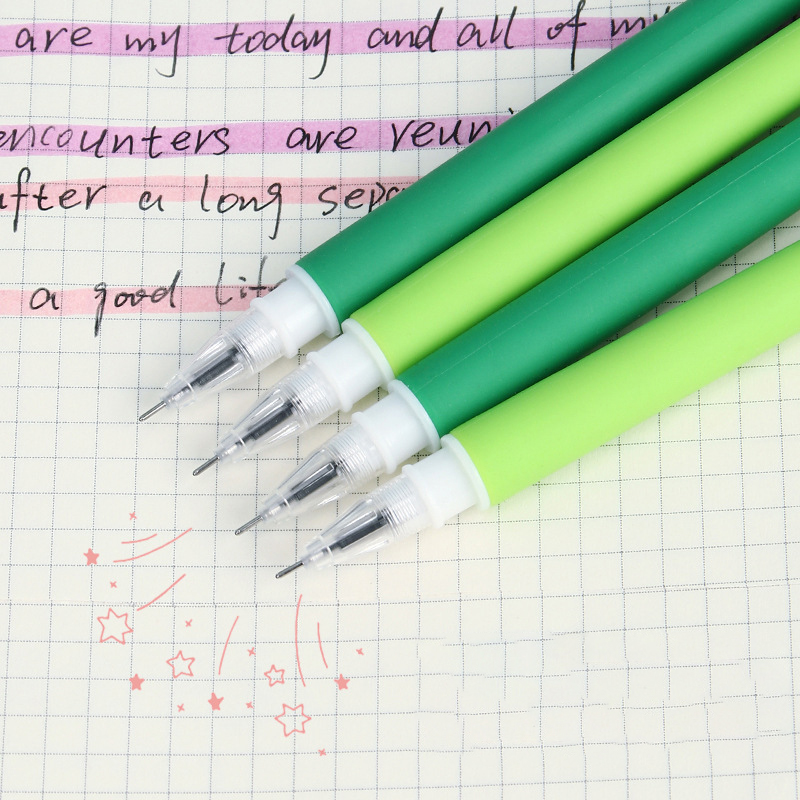 are my today and all of my
encounters are reuni
after a long sepa
a good life